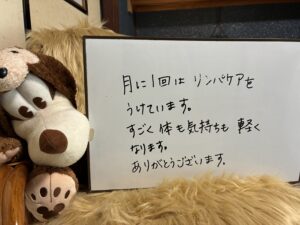 月に1回は リンパケアを
うけています。
すごく体も気持ちも軽く
なります。
ありがとうございます。